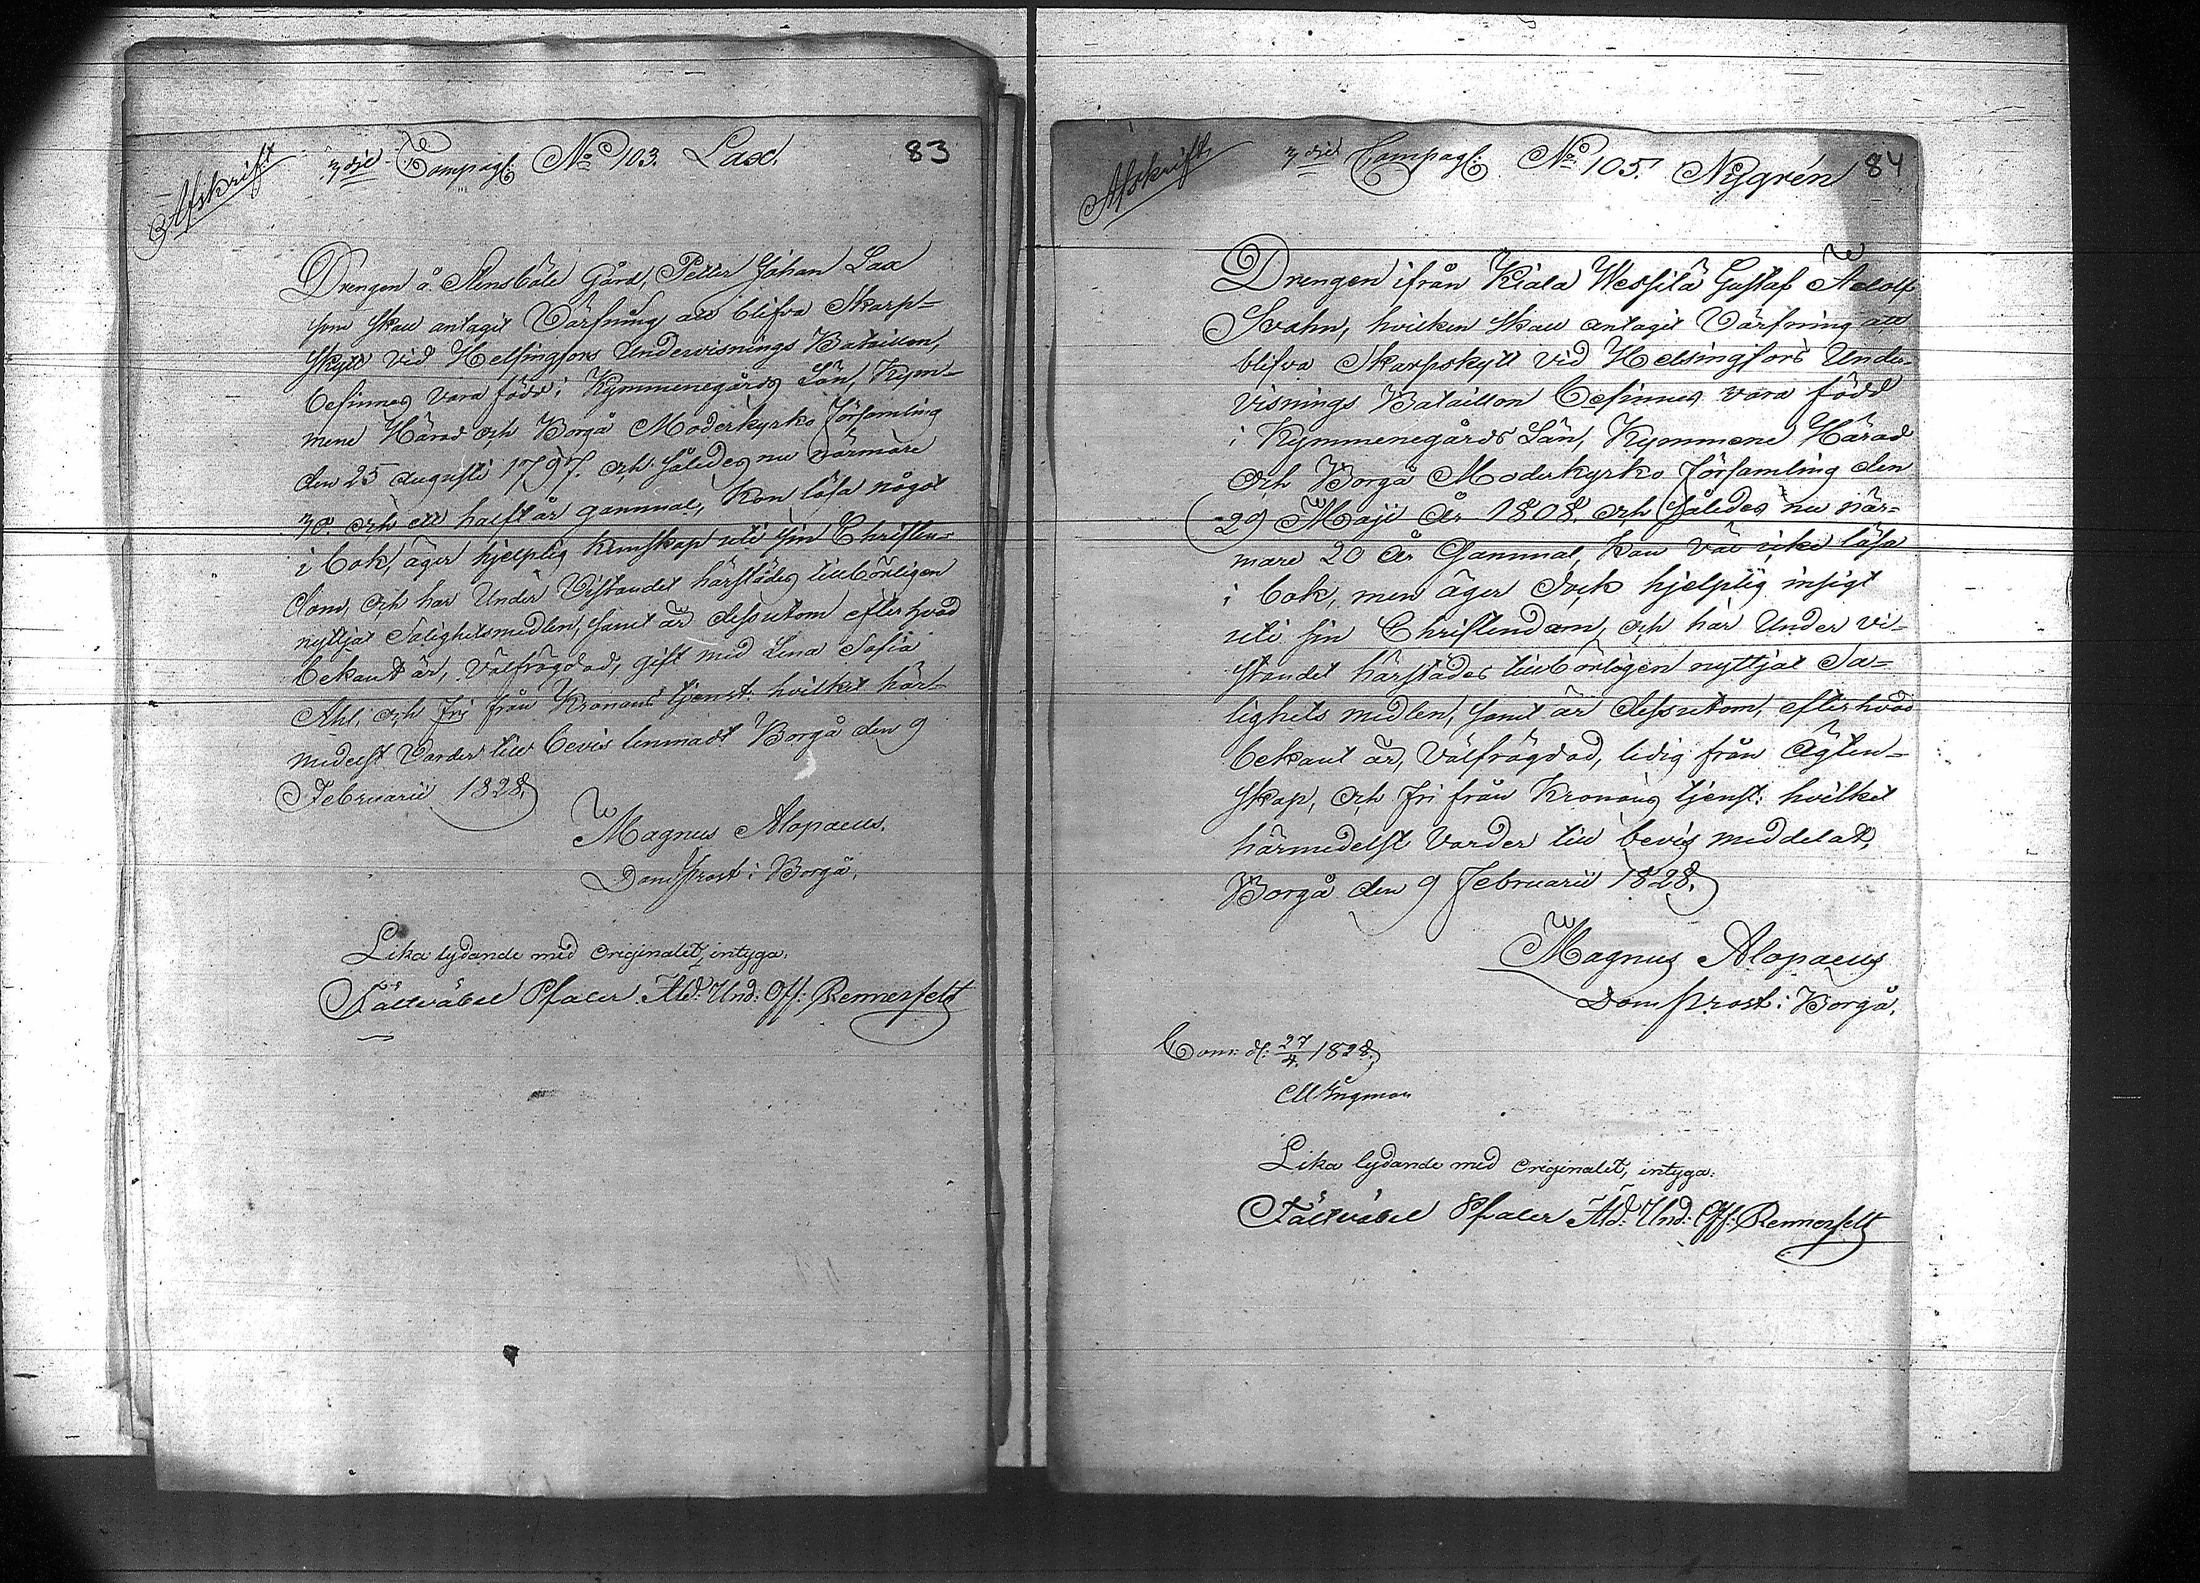 Afskrift
3die Compagl: No 103. Lax.
83
Drengen å Stensböle Gård, Petter Johan Lax
som skall antagit Värfning att blifva Skarp-
skytt vid Helsingfors Undervisnings Bataillon,
befinnes vara född i Kymmenegårds Län, Kym-
mene Härad och Borgå Moderkyrko Församling
den 25 Augusti 1797. och således nu närmare
och ett halft år gammal, kan läsa något
i bok, äger hjelplig kunskap uti sin Christen-
dom, och har under Vistandet härstädes tillbörligen
nyttjat Salighetsmedlen, samt är dessutom efterhvad
bekant är, välfrägdad, gift med Lena Sofia
Ahl. och fri från Kronans tjenst: hvilket här-
medelst varder till bevis lemnadt Borgå den 9
Februarii 1828.
Magnus Alopaeus.
Domprost i Borgå.
Lika lydande med Originalet, intyga.
Fältväbel Pfaler Fld: Und: Off: Rennerfelt
Afskrift
3die Compagl: No 105. Nygrén
84
Drengen ifrån Kiala Wessilä Gustaf Adolf
Svahn, hvilken skall antagit Värfning att
blifva Skarpskytt vid Helsingfors Under-
visnings Bataillon befinnes vara född
i Kymmenegårds Län, Kymmene Härad
och Borgå Moderkyrko församling den
29 Maji År 1808. och således nu när-
mare 20 år Gammal, kan väl icke läsa
i bok, men äger dock hjelplig insigt
uti sin Christendom, och har under vi-
standet härstädes tillbörligen nyttjat Sa-
lighets medlen, samt är dessutom, efterhvad
bekant är, välfrägdad, ledig från Ägten-
skap, och fri från Kronans tjenst: hvilket
härmedelst varder till bevis meddelat,
Borgå den 9 Februarii 1828.
Magnus Alopaeus
Domprost i Borgå.
Com: d: 27/4 1828.
Ingman
Lika lydande med Originalet, intyga:
Fältväbel Pfaler Fld: Und: Off: Rennerfelt